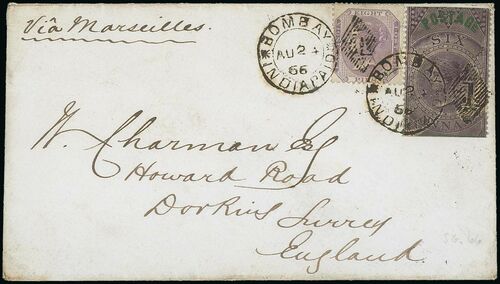 Viâ Marseilles.
BOMBAY
AU 2
66
INDIA PAID
EIGHT
POSTAGE
SIX
BOMBAY
AU 2
66
INDIA
W. Charman Esq
Howard Road
Dorking Surrey
England.